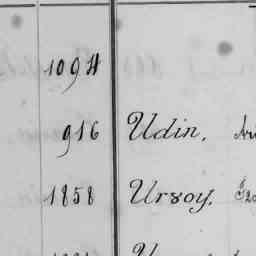 1094
916 Udin,
1858 Ursoy,